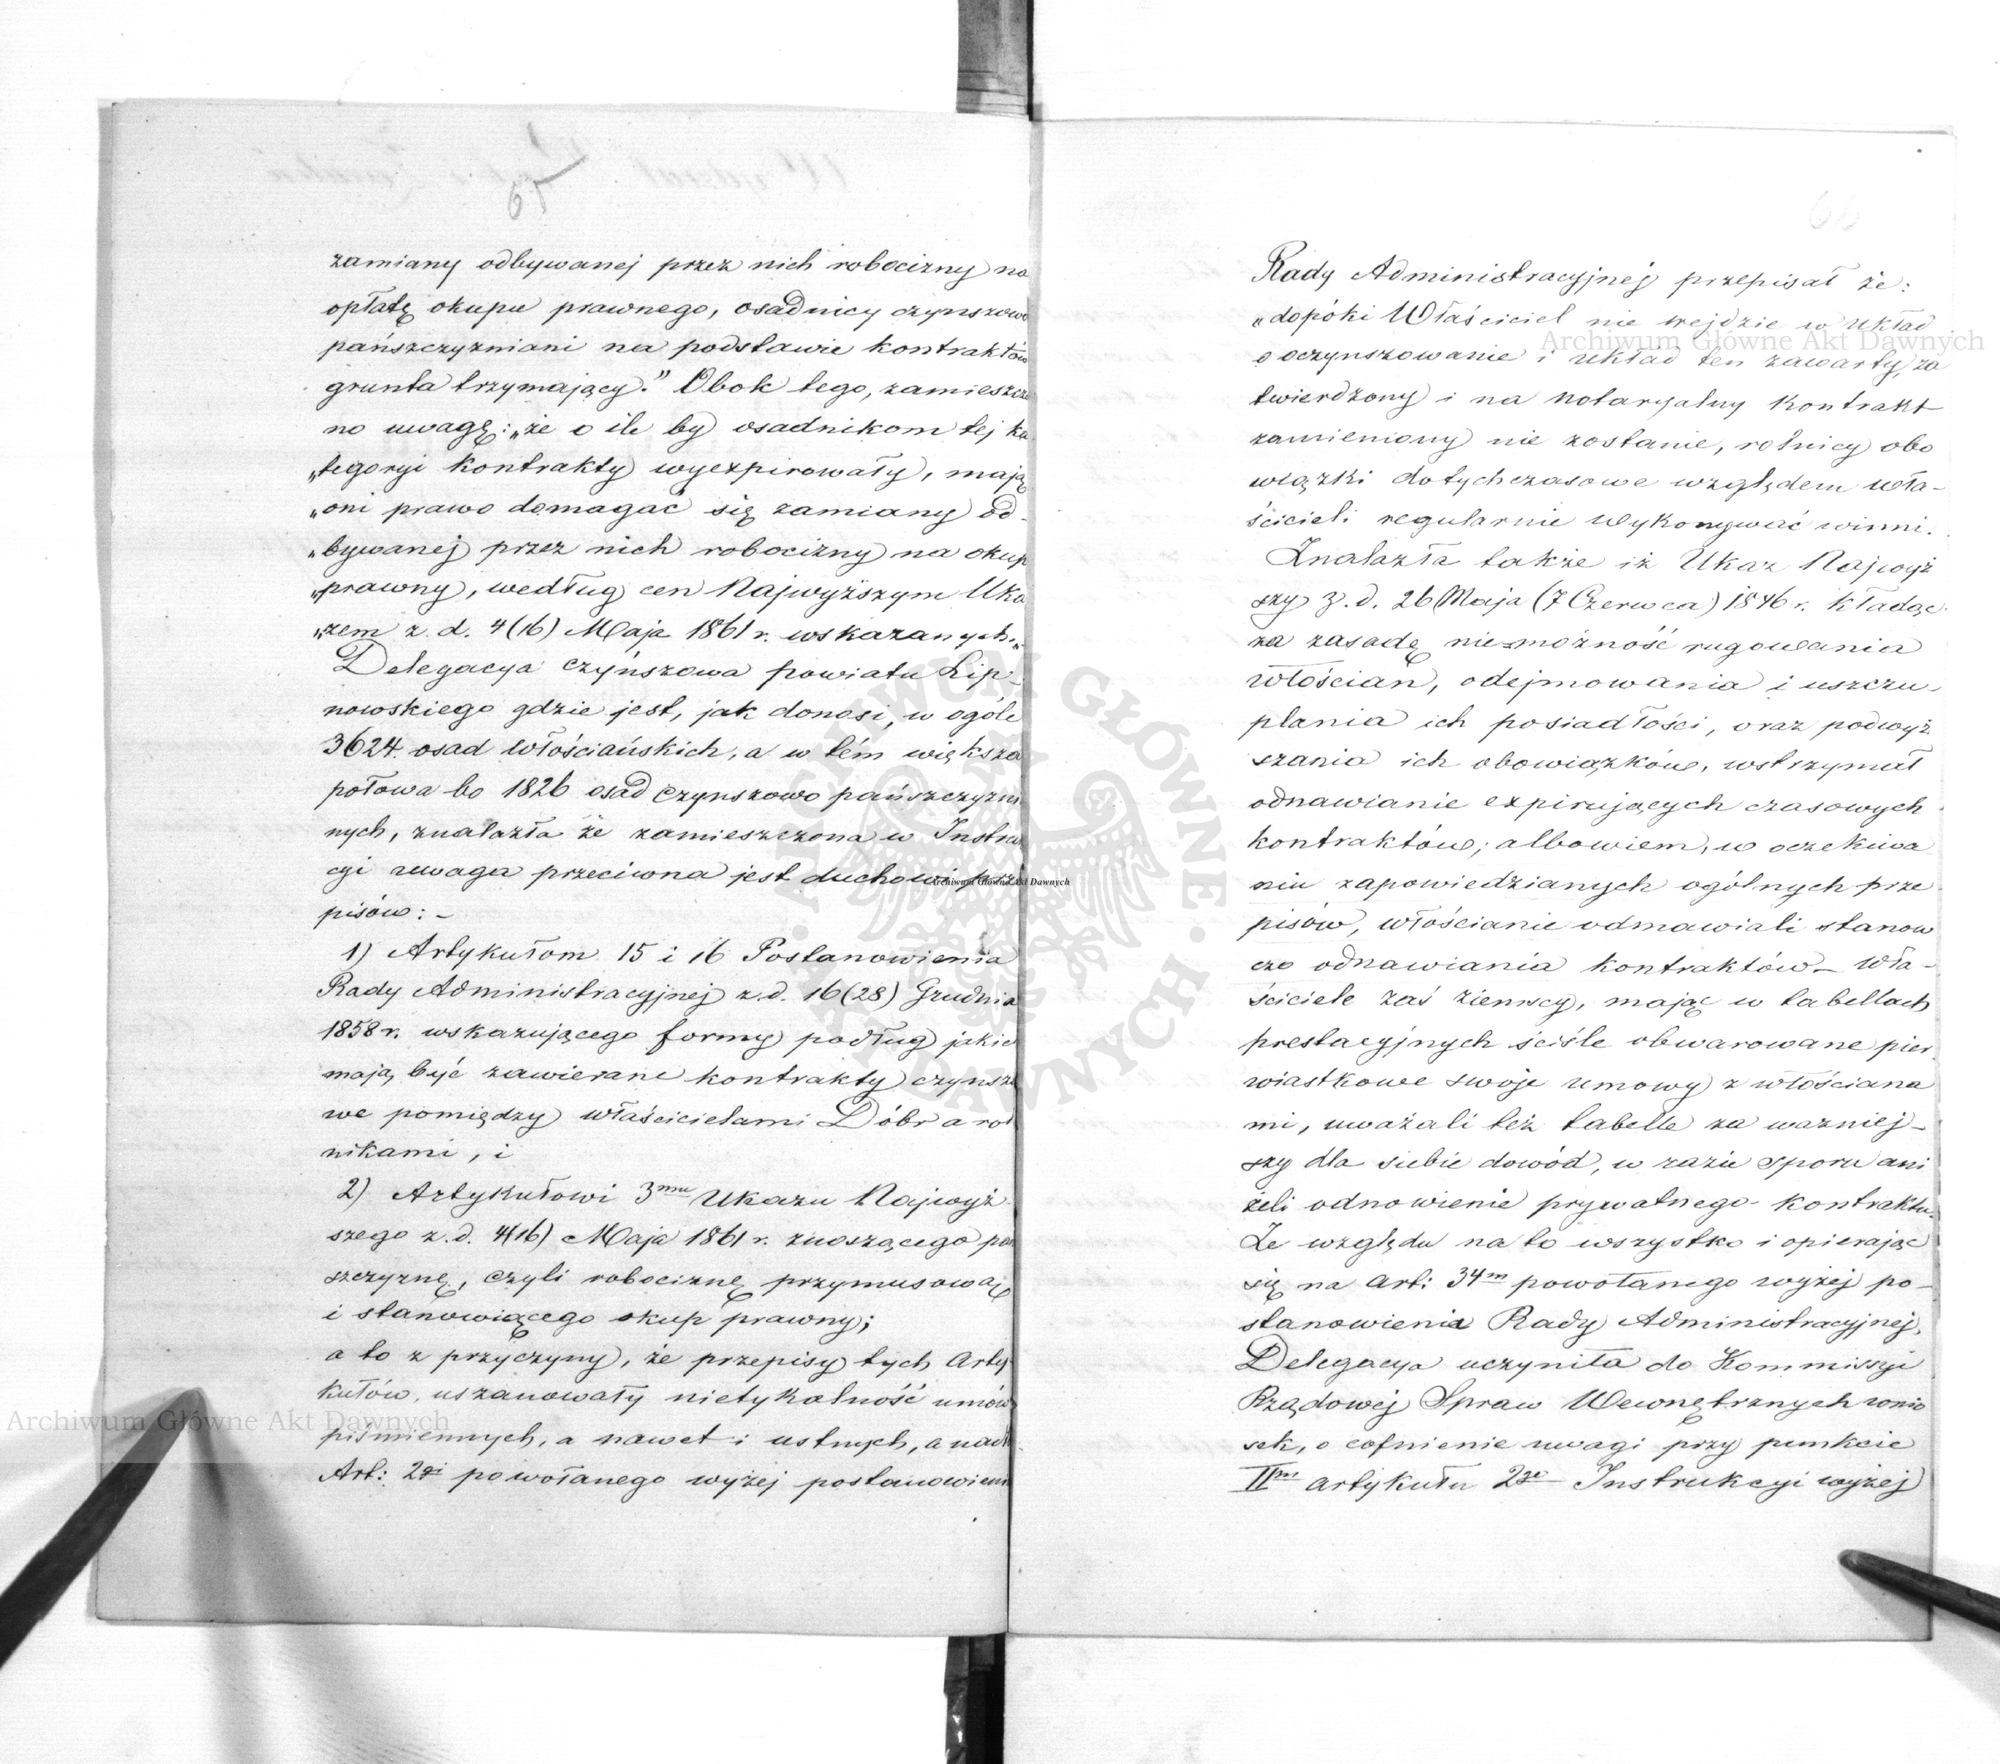 65
zamiany odbywanej przez nich robocizny na
opłatę okupu prawnego, osadnicy czynszowo
pańszczyzniani na podstawie kontraktów
grunta trzymający." Obok tego, zamieszczo
no uwagę: „że o ile by osadnikom tej ka
„tegoryi kontrakty wyexpirowały, mają
„oni prawo domagać się zamiany od-
„bywanej przez nich robocizny na okup
„prawny, według cen Najwyższym Uka
„zem z. d. 4 (16) Maja 1861 r. wskazanych."
Delegacya czyńszowa powiatu Lip-
nowskiego gdzie jest, jak donosi, w ogóle
3624. osad włościańskich, a w tém większa
połowa bo 1826 osad czynszowo pańszczyzni
nych, znalazła że zamieszczona w Instruk
cyi uwaga przeciwna jest duchowi prze
pisów: -
1) Artykułom 15 i 16 Postanowienia
Rady Administracyjnej z. d. 16 (28) Grudnia
1858 r. wskazującego formy podług jakich
mają być zawierane kontrakty czynszo
we pomiędzy właścicielami Dóbr a rol
nikami, i
2) Artykułowi 3mu Ukazu Najwyż
szego z. d. 4(16) Maja 1861 r. znoszącego pań
szczyznę, czyli robociznę przymusową
i stanowiącego okup prawny;
a to z przyczyny, że przepisy tych Arty
kułów, uszanowały nietykalność umów
piśmiennych, a nawet i ustnych, a nadto
Art: 2gi powołanego wyżej postanowienia
66
Rady Administracyjnej przepisał że:
„dopóki Właściciel nie wejdzie w układ
o oczynszowanie i układ ten zawarty, za
twierdzony i na notaryalny kontrakt
zamieniony nie zostanie, rolnicy obo
wiązki dotychczasowe względem wła-
ścicieli regularnie wykonywać winni.
Znalazła także iż Ukaz Najwyż
szy z. d. 26 Maja (7 Czerwca) 1846 r. kładąc
za zasadę niemożność rugowania
włościan, odejmowania i uszczu-
plania ich posiadłości, oraz podwyż
szania ich obowiązków, wstrzymał
odnawianie expirujących czasowych
kontraktów; albowiem, w oczekiwa
niu zapowiedzianych ogólnych prze
pisów, włościanie odmawiali stanow
czo odnawiania kontraktów - wła-
ściciele zaś ziemscy, mając w tabellach
prestacyjnych ściśle obwarowane pier
wiastkowe swoje umowy z włościana
mi, uważali też tabelle za ważniej-
szy dla siebie dowód, w razie sporu ani
żeli odnowienie prywatnego kontraktu.
Ze względu na to wszystko i opierając
się na Art: 34m powołanego wyżej po-
stanowienia Rady Administracyjnej,
Delegacya uczyniła do Kommissyi
Rządowej Spraw Wewnętrznych wnio
sek, o cofnienie uwagi przy punkcie
IIm artykułu 2go Instrukcyi wyżej
Archiwum Główne Akt Dawnych
Archiwum Główne Akt Dawnych
Archiwum Główne Akt Dawnych
ARCHIWUM GŁÓWNE AKT DAWNYCH